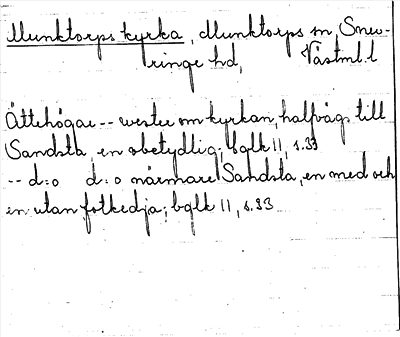 Munktorps kyrka, Munktorps sn, Snev-
ringe hd, Västml. l
Ättehögar -- wester om kyrkan, halfvägs till
Sandsta, en obetydlig; bglk 11, s.33
-- d:o d:o närmare Sandsta, en med och
en utan fotkedja; bglk 11, s.33